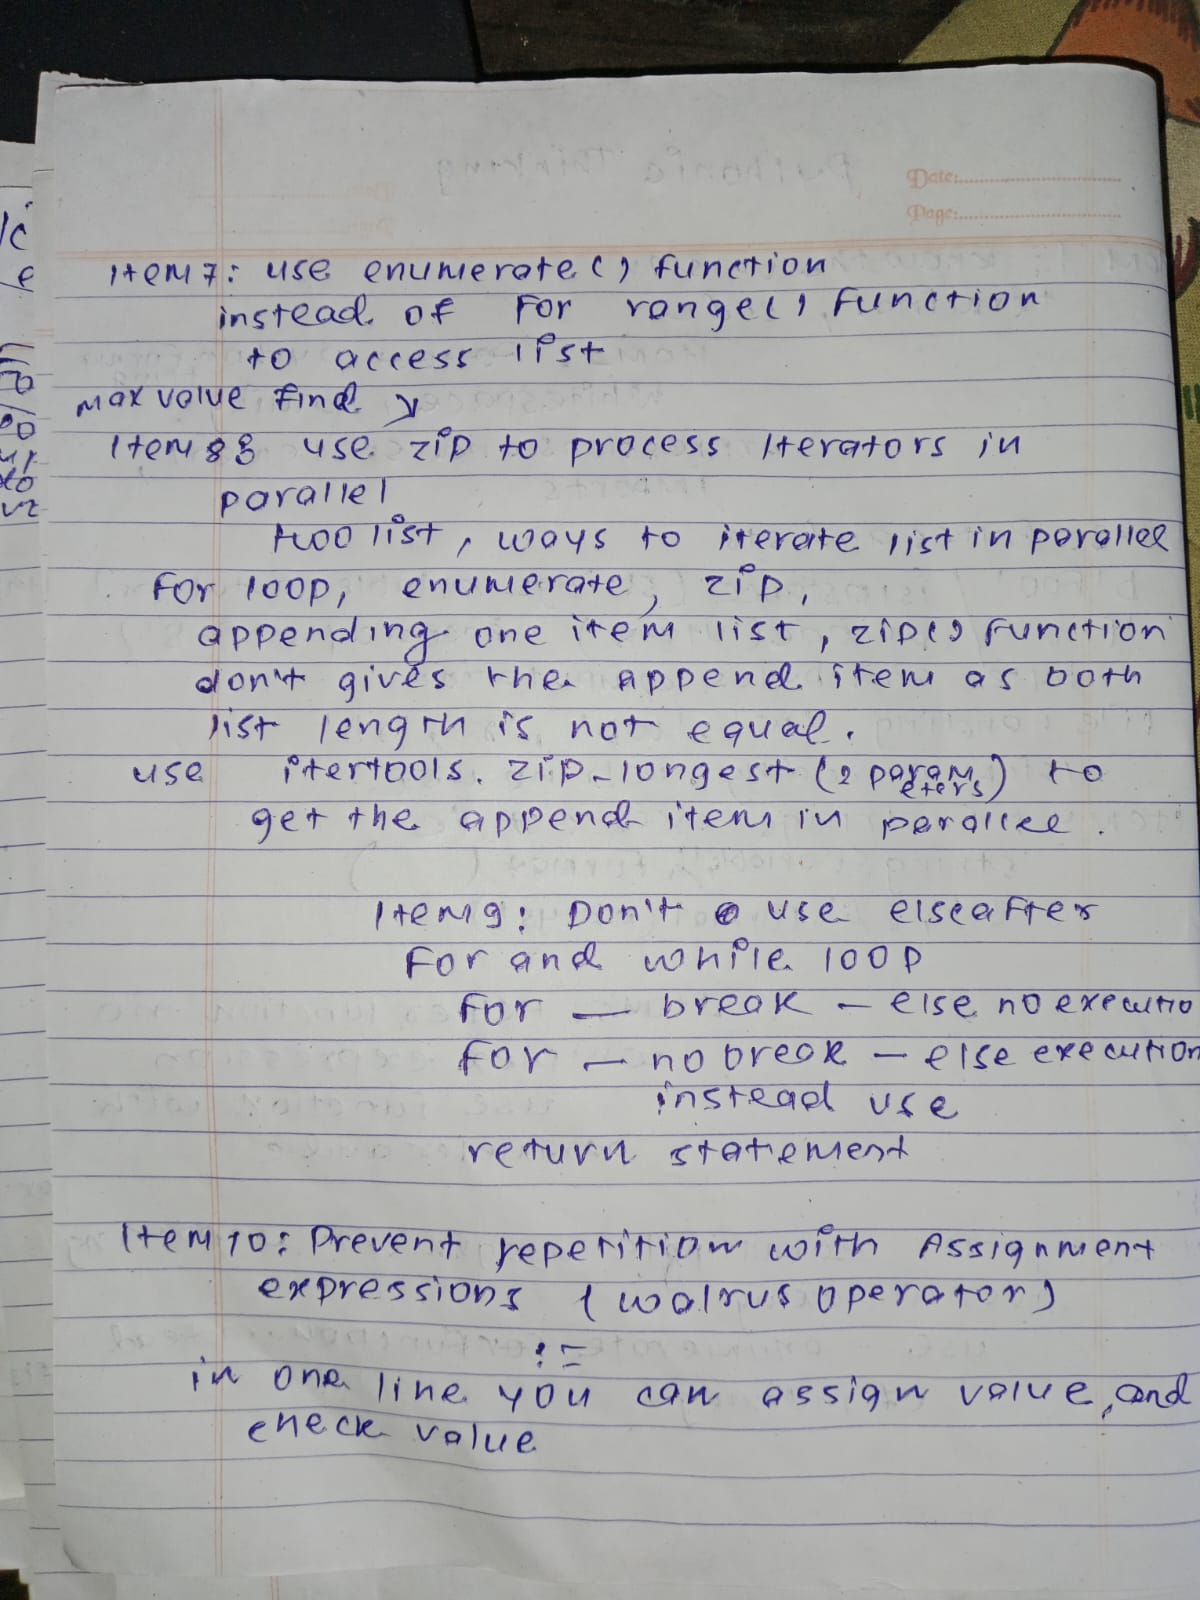 Date:
Page:
Item 7: use enumerate() function
instead of for range() function
to access list
max value find
Item 8: use zip to process Iterators in
parallel
two list, ways to iterate list in parallel
for loop, enumerate, zip,
appending one item list, zip() function
don't gives the append item as both
list length is not equal.
use itertools.zip_longest (2 parameters) to
get the append item in parallel.
Item 9: Don't use else after
for and while loop
for — break — else no executio
for — no break — else execution
instead use
return statement
Item 10: Prevent repetition with Assignment
expressions (walrus operator)
:=
in one line you can assign value, and
check value